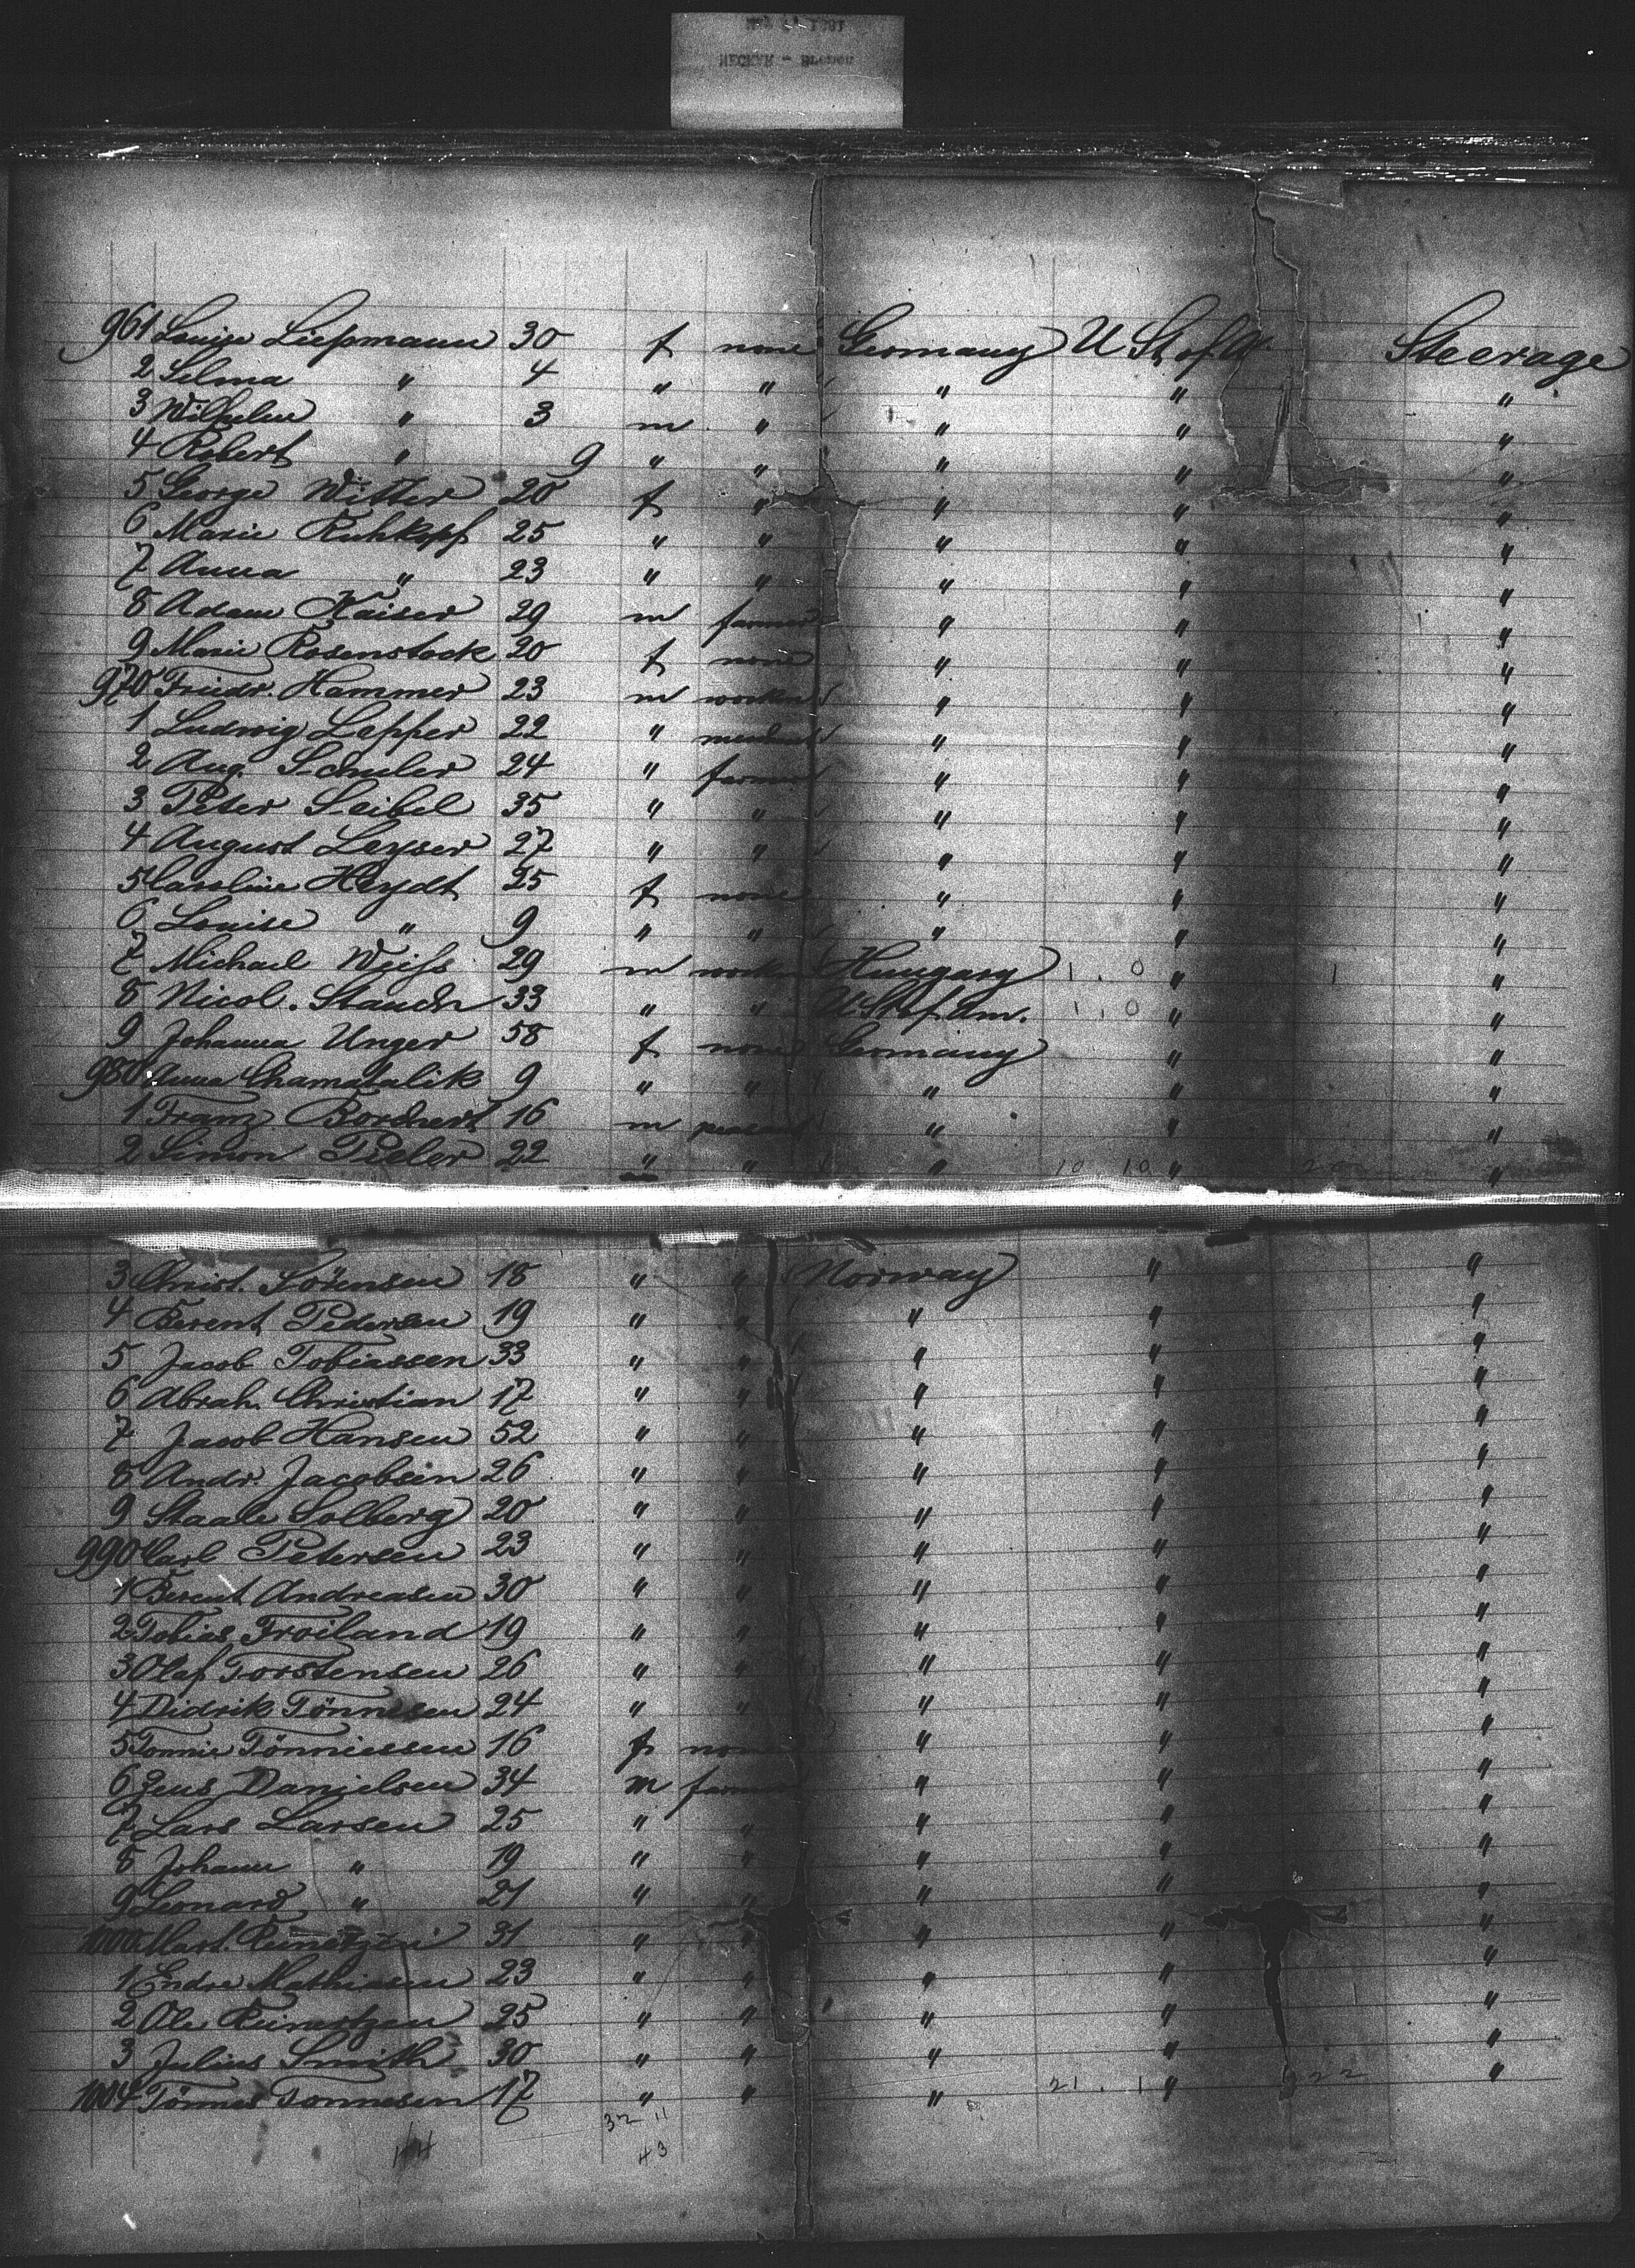 NECKAR - Bremen
961 Louise Liepmann 30 f none Germany U St of A Steerage
2 Selma " 4 " " " " "
3 Wilhelm " 3 m " " " "
4 Robert " 9 " " " " "
5 George Witter 20 f " " " "
6 Marie Ruhkopf 25 " " " " "
7 Anna " 23 " " " " "
8 Adam Kaiser 29 m farmer " " "
9 Marie Rosenstock 20 f none " " "
970 Friedr. Hammer 23 m worken " " "
1 Ludwig Lepper 22 " " " "
2 Aug. Schuler 24 " farmer " " "
3 Peter Seibel 35 " " " " "
4 August Leyser 27 " " " " "
5 Caroline Heydt 25 f none " " "
6 Louise " 9 " " " " "
7 Michael Weiss 29 m worken Hungary 1 . 0 " 1 "
8 Nicol. Stauch 33 " " U St of Am. 1 . 0 " "
9 Johanna Unger 58 f none Germany " "
980 Anna Chamatalik 9 " " " " "
1 Franz Borchert 16 m peasant " " "
2 Simon Pieler 22 " " " 10 . 10 " "
3 Christ. Sörensen 18 " " Norway " "
4 Berent Pedersen 19 " " " " "
5 Jacob Tobiassen 33 " " " " "
6 Abrah. Christian 17 " " " " "
7 Jacob Hansen 52 " " " " "
8 Andr. Jacobsen 26 " " " " "
9 Staale Solberg 20 " " " " "
990 Carl Petersen 23 " " " " "
1 Berent Andreasen 30 " " " " "
2 Tobias Froiland 19 " " " " "
3 Olaf Torstensen 26 " " " " "
4 Didrik Tönnesen 24 " " " " "
5 Tonnie Tönniessen 16 f none " " "
6 Jens Danielsen 34 m farmer " " "
7 Lars Larsen 25 " " " " "
8 Johann " 19 " " " " "
9 Leonard " 21 " " " " "
1000 Mart. 31 " " " " "
1 Endre Mathiasen 23 " " " " "
2 Ole 25 " " " " "
3 Julius Smith 30 " " " " "
1004 Tönnes Tonnesen 17 " " " 21 . 1 " 22 "
32 11
43